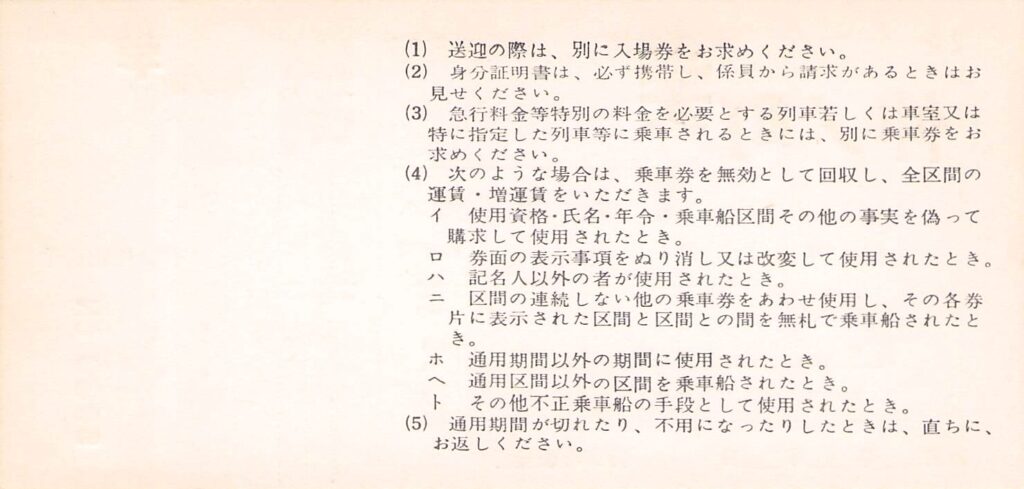 (1) 送迎の際は、別に入場券をお求めください。
(2) 身分証明書は、必ず携帯し、係員から請求があるときはお
見せください。
(3) 急行料金等特別の料金を必要とする列車若しくは車室又は
特に指定した列車等に乗車されるときには、別に乗車券をお
求めください。
(4) 次のような場合は、乗車券を無効として回収し、全区間の
運賃・増運賃をいただきます。
イ 使用資格・氏名・年令・乗車船区間その他の事実を偽って
購求して使用されたとき。
ロ 券面の表示事項をぬり消し又は改変して使用されたとき。
ハ 記名人以外の者が使用されたとき。
ニ 区間の連続しない他の乗車券をあわせ使用し、その各券
片に表示された区間と区間との間を無札で乗車船されたと
き。
ホ 通用期間以外の期間に使用されたとき。
ヘ 通用区間以外の区間を乗車船されたとき。
ト その他不正乗車船の手段として使用されたとき。
(5) 通用期間が切れたり、不用になったりしたときは、直ちに、
お返しください。